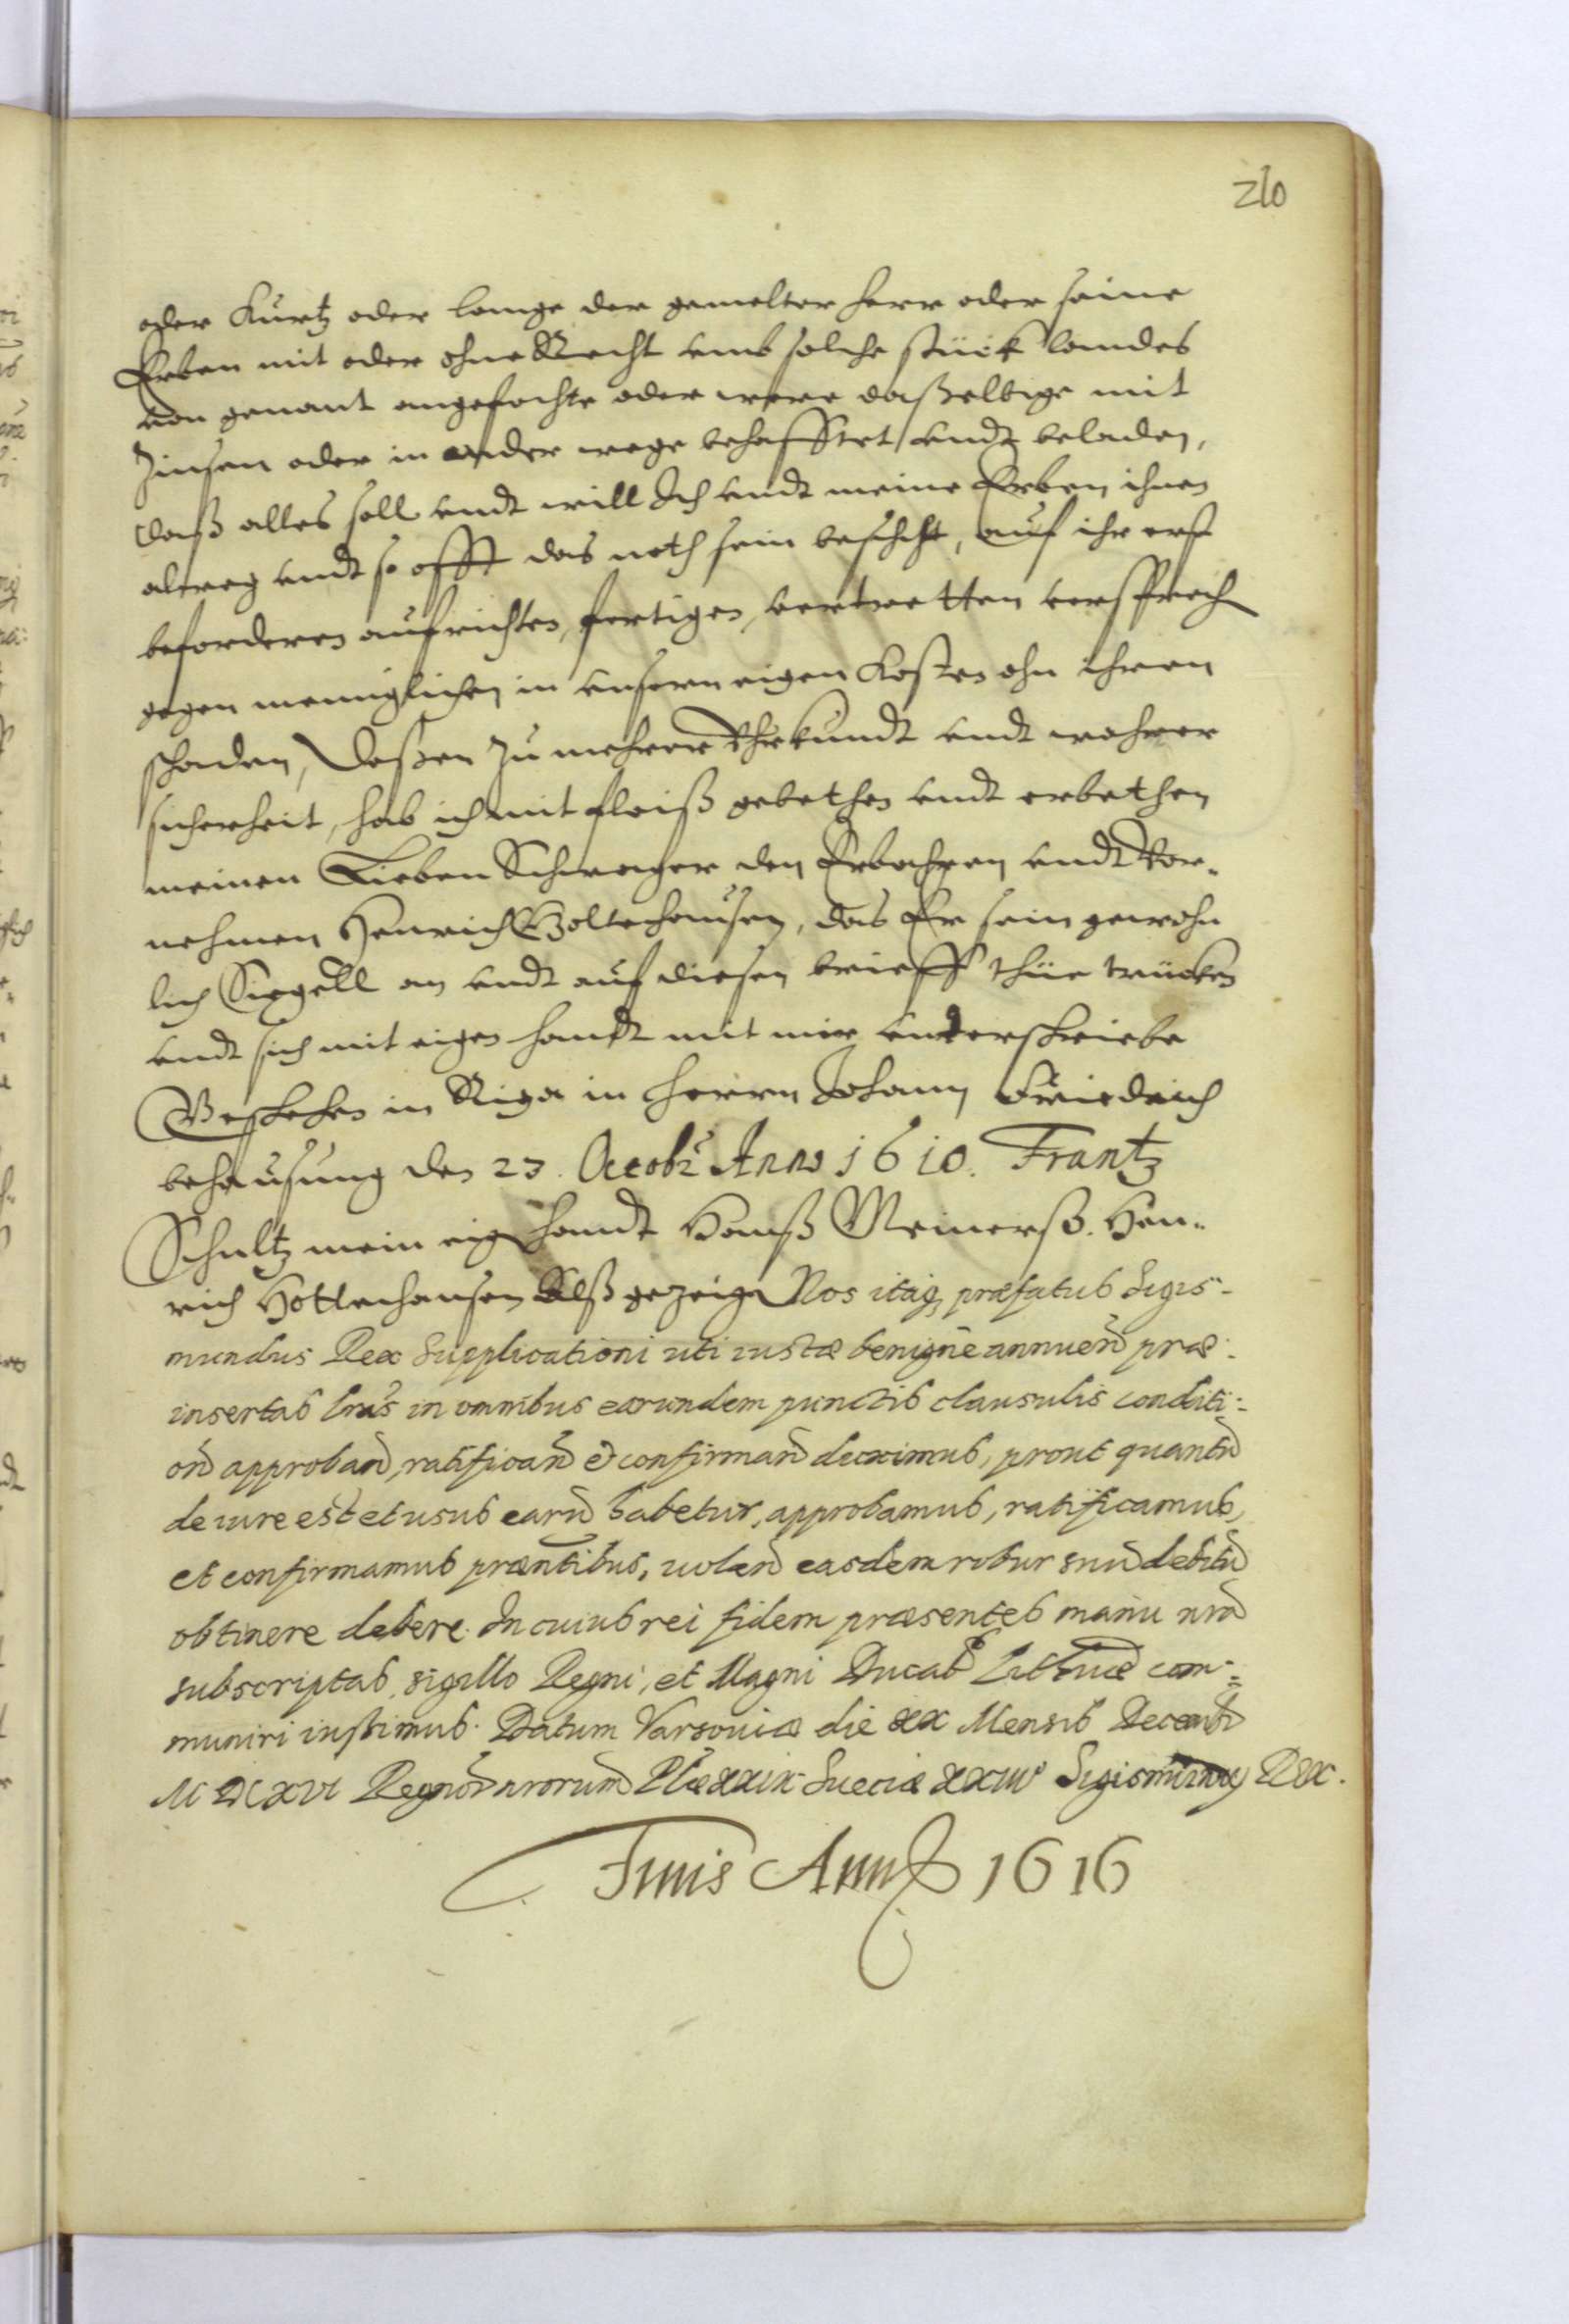 210
oder Kurtz oder lange der gemelter Herr oder seine
Erben mit oder ohne Recht umb solche stück landes
von genant angefochte oder were daßelbige mit
Zinsen oder in ander wege behafftet undt beladen,
daß alles soll undt will Ich undt meine Erben ihnen
alweg undt so offt das noth sein beschiht, auf ihr erst
beforderen aufrichten, fertigen, vertretten versprech
gegen menniglichen in unsern eigen Kosten ohn ihren
schaden, Deßen zu mehrer Uhrkundt undt wahrer
sicherheit, hab ich mit fleiß gebethen undt erbethen
meinen Lieben Schwager den Erbahren undt Vor-
nehmen Henrich Holtechausen, das Er sein gewohn
lich Siegell an undt auf diesen brieff thüe trücken
undt sich mit eigen handt mit mir underschriebe
Geschehen in Riga in Herrn Johann Friedrich
behausung den 23. Octobr Anno 1610. Frantz
Schultz mein eig handt Hanß Meinerß. Hen-
rich Holtechausen Alß gezeige Nos itaq præfatus Sigis-
mundus Rex Supplicationi uti iustæ benigne annuend præ-
insertas lras in omnibus earundem punctis clausulis conditi-
on approband, ratificand & confirmand duximus, prout quantu
de iure est et usus earu habetur, approbamus, ratificamus,
et confirmamus præntibus, volen easdem robur suu debitu
obtinere debere. In cuius rei fidem præsentes manu nra
subscriptas, sigillo Regni, et Magni Ducat Lithuæ com-
muniri iussimus. Datum Varsoviæ die xx Mensis Decemb
M DCXVI Regnor nrorum Plæ xxix Sueciæ XXIIIo Sigismundus Rex.
Finis Anni 1616